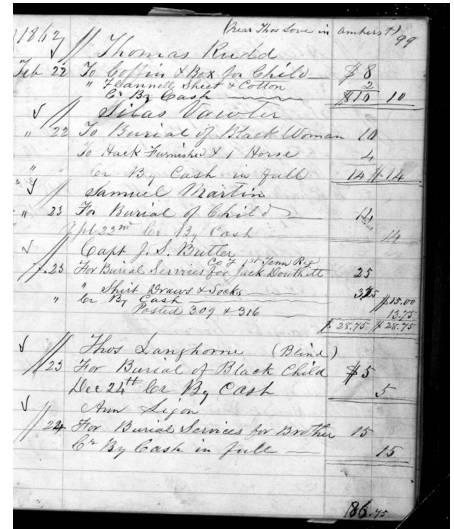 (near Thos Love in Amherst) 99
1862
Thomas Rudd
Feb 22 To Coffin & Box for Child $8
" Flannell Sheet & Cotton 2
Cr By Cash $10 10
Silas Vawter
" 22 To Burial of Black Woman 10
To Hack Furnished & 1 Horse 4
" Cr By Cash in full 14 $14
Samuel Martin
" 23 For Burial of Child 14
22nd Cr By Cash 14
Capt J. S. Butler
Co F 1st Tenn Reg
23 For Burial Services for Jack Douthett 25
" Shirt Draws & Socks 3.75
" Cr By Cash $15.00
Posted 309 & 316 13.75
$28.75 $28.75
Thos Langhorne (Blind)
23 For Burial of Black Child $5
Dec 24th Cr By Cash 5
Ann Ligon
24 For Burial Services for Brother 15
Cr By Cash in full 15
86.75